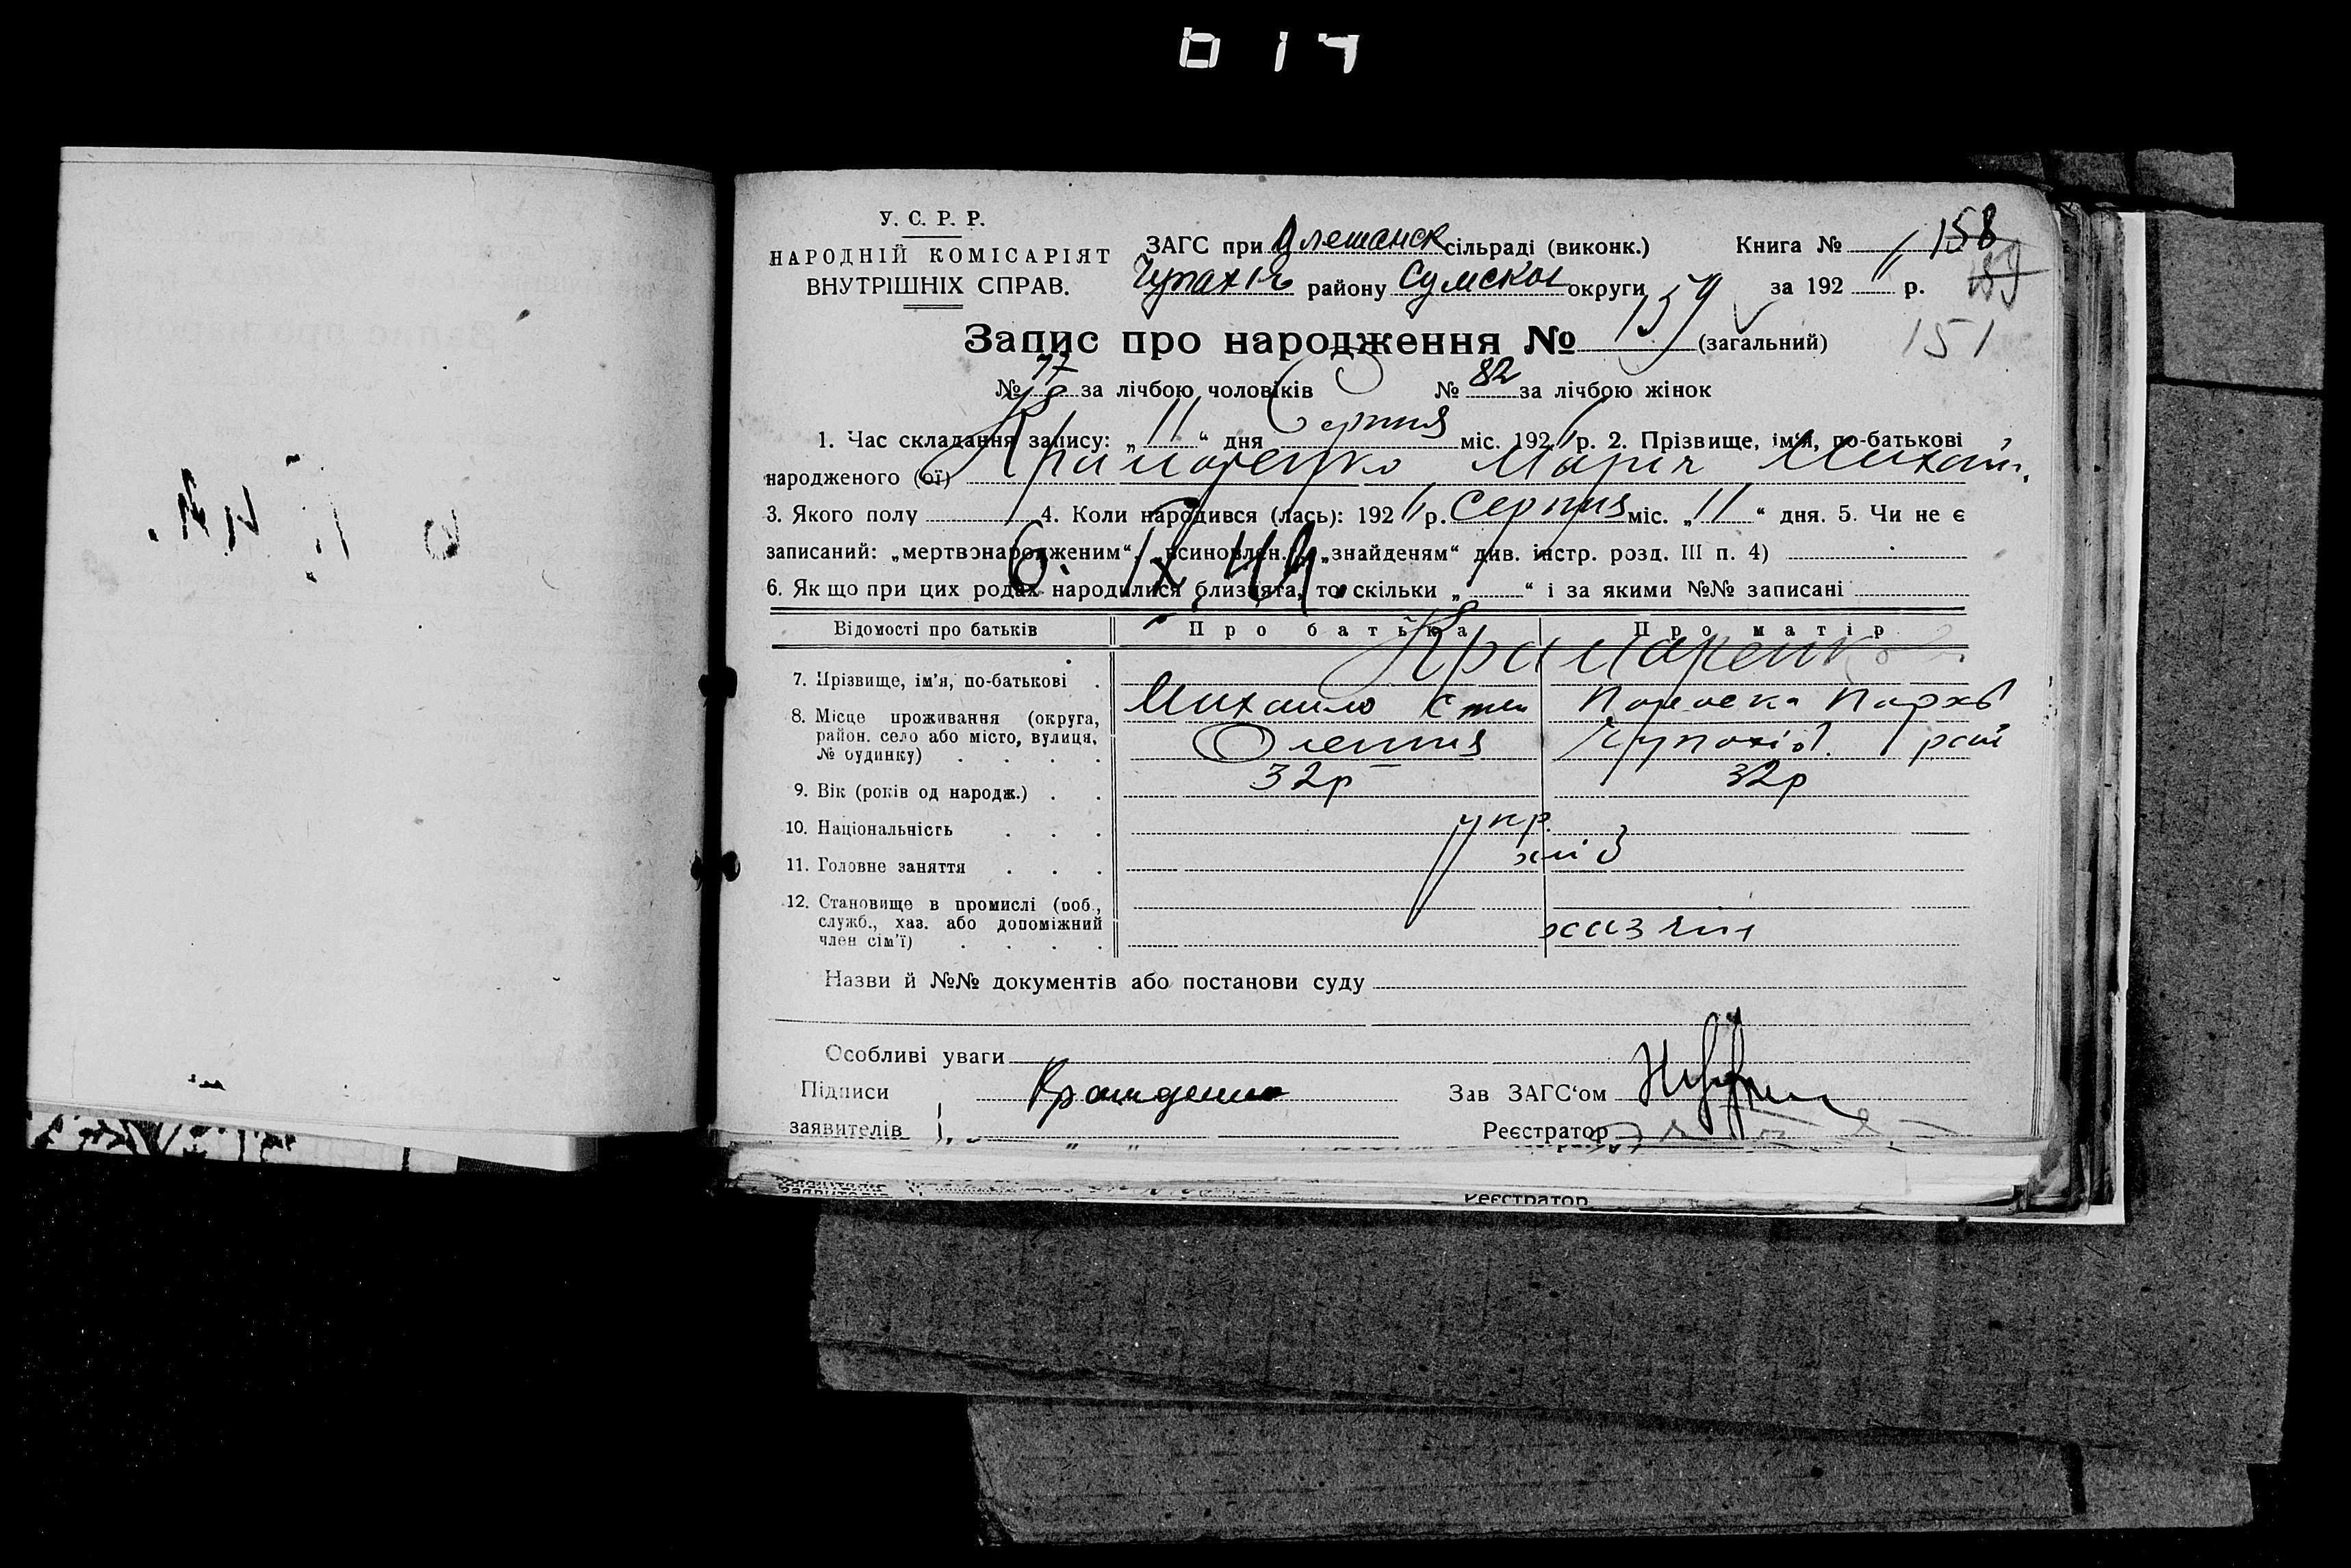 У. С. Р. Р.
НАРОДНІЙ КОМІСАРІЯТ
ВНУТРІШНІХ СПРАВ.
ЗАГС при Олешанск сільраді (виконк.)
Чупахів району Сумської округи
Книга № 158
за 192 р. 159
151
Запис про народження № 159 (загальний)
№ 77 за лічбою чоловіків № 82 за лічбою жінок
1. Час складання запису: „ 11 “ дня Серпня міс. 192 р. 2. Прізвище, ім‘я, по-батькові
народженого (ої) Марія Михайл.
3. Якого полу 4. Коли народився (лась): 192 р. Серпня міс. „ 11 “ дня. 5. Чи не є
записаний: „мертвонародженим“, „всиновлен.“, „знайденям“ див. інстр. розд. III п. 4)
6. IX 44.
6. Як що при цих родах народилися близнята, то скільки „ “ і за якими №№ записані
Відомості про батьків Про батька Про матір
7. Прізвище, ім’я, по-батькові
Михайло Степ Параска Пархв
8. Місце проживання (округа, район. село або місто, вулиця, № будинку)
Олешня Чупахів. рай
9. Вік (років од народж.) 32р 32р
10. Національність укр.
11. Головне заняття хліб
12. Становище в промислі (роб., служб., хаз. або допоміжний член сім’ї)
хазяін
Назви й №№ документів або постанови суду
Особливі уваги
Підписи Зав ЗАГС‘ом
заявителів Реєстратор
Реєстратор